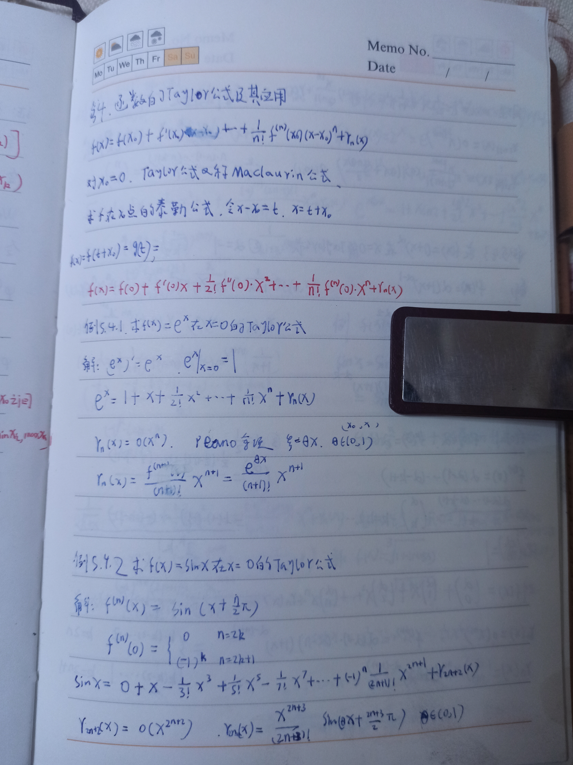 Memo No.
Mo Tu We Th Fr Sa Su
Date / /
§4. 函数的Taylor公式及其应用
f(x)=f(x₀)+f'(x₀)(x-x₀)+…+1/n! f⁽ⁿ⁾(x₀)(x-x₀)ⁿ+rₙ(x)
对x₀=0. Taylor公式又称Maclaurin公式.
求f在x₀点的泰勒公式. 令x-x₀=t. x=t+x₀
f(x)=f(t+x₀)=g(t);
f(x)=f(0)+f'(0)x+1/2! f''(0)·x²+…+1/n! f⁽ⁿ⁾(0)·xⁿ+rₙ(x)
例5.4.1. 求f(x)=eˣ在x=0的Taylor公式
解: (eˣ)'=eˣ. eˣ|ₓ₌₀=1
eˣ=1+x+1/2! x²+…+1/n! xⁿ+rₙ(x)
rₙ(x)=o(xⁿ). peano余项 ξ=θx. θ∈(0,1)
rₙ(x)= xⁿ⁺¹= e^(θx)/(n+1)! xⁿ⁺¹
例5.4.2 求f(x)=sinx在x=0的Taylor公式
解: f⁽ⁿ⁾(x)=sin(x+n/2 π)
f⁽ⁿ⁾(0)={ 0 n=2k
(-1)ᵏ n=2k+1
sinx=0+x-1/3! x³+1/5! x⁵-1/7! x⁷+…+(-1)ⁿ 1/(2n+1)! x²ⁿ⁺¹+r₂ₙ₊₂(x)
r₂ₙ₊₂(x)=o(x²ⁿ⁺²). r₂ₙ₊₂(x)= x²ⁿ⁺³/(2n+3)! sin(θx+(2n+3)/2 π) θ∈(0,1)